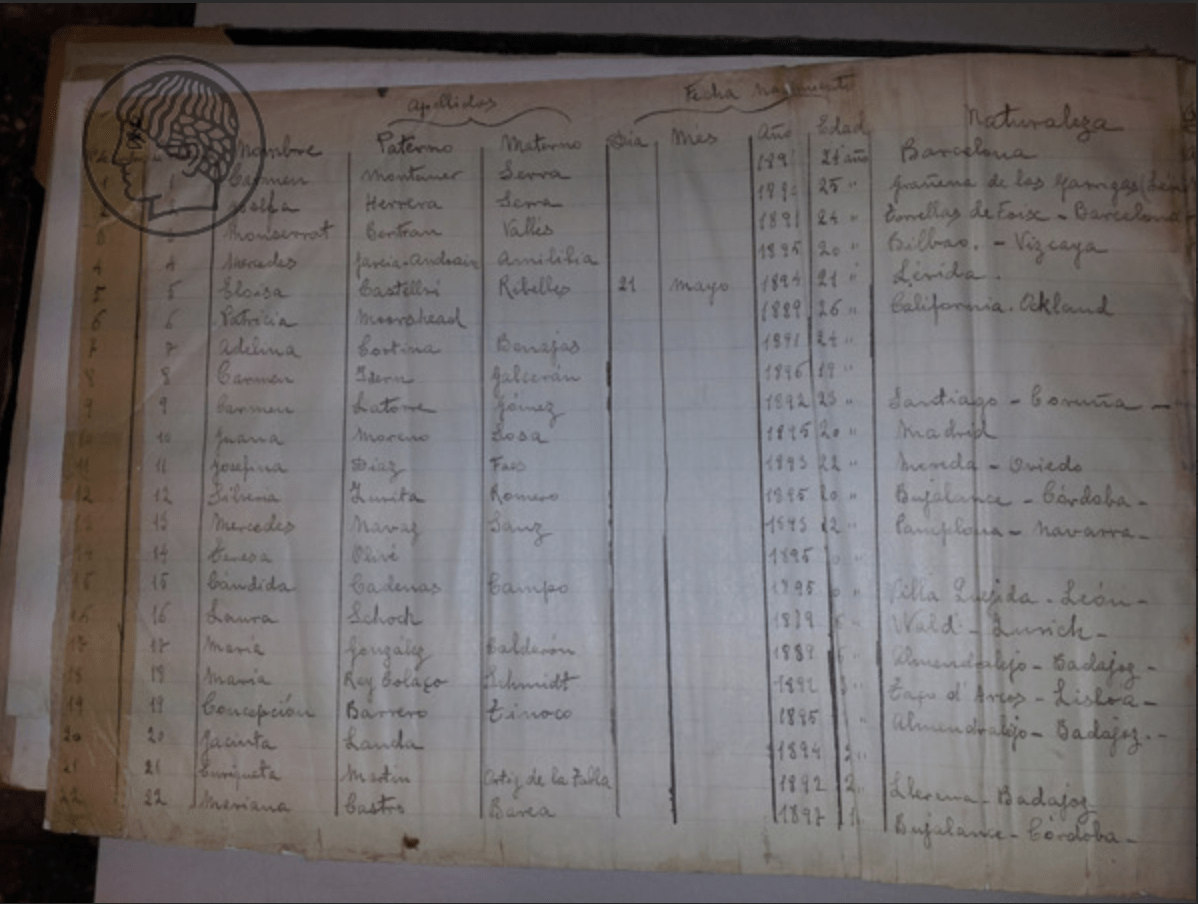 Apellidos Fecha nacimiento
Nombre Paterno Materno Dia Mes Año Edad Naturaleza
1 1 Carmen Montaner Serra 1891 24 años Barcelona
Herrera Serra 25 " Grañena de las Garrigas
3 Monserrat Bertran Vallés 1891 24 " Torrellas de Foix - Barcelona
4 4 Mercedes Garcia-Andoain Amilibia 1895 20 " Bilbao. - Vizcaya
5 5 Eloisa Castellví Ribelles 21 Mayo 1894 21 " Lérida.
6 6 Patricia Moorshead 1889 26 " California. Okland
7 7 Adelina Cortina Benajas 1891 24 "
8 8 Carmen Idern Galcerán 1896 19 "
9 9 Carmen Latorre Gómez 1892 23 " Santiago - Coruña -
10 10 Juana Moreno Sosa 1895 20 " Madrid
11 11 Josefina Diaz Faes 1893 22 " - Oviedo
12 12 Silveria Zurita Romero 1895 20 " Bujalance - Córdoba -
13 13 Mercedes Navaz Sanz 1893 22 " Pamplona - Navarra -
14 14 Teresa Olivé 1895
15 15 Cándida Cadenas Campo 1895 " Villa Quejida - León -
16 16 Laura Schoch Wald - Zurich -
17 17 María González Calderón 1889 " Almendralejo - Badajoz -
18 18 María Rey Colaço Schmidt 1892 " d'Arcos - Lisboa -
19 19 Concepción Barrero Tinoco 1895 " Almendralejo - Badajoz. -
20 20 Jacinta Landa 1894 2 "
21 21 Enriqueta Martin Ortiz de la Tabla 1892 2 " Llerena - Badajoz
22 22 Mariana Castro Barea 1897 1 Bujalance - Córdoba -